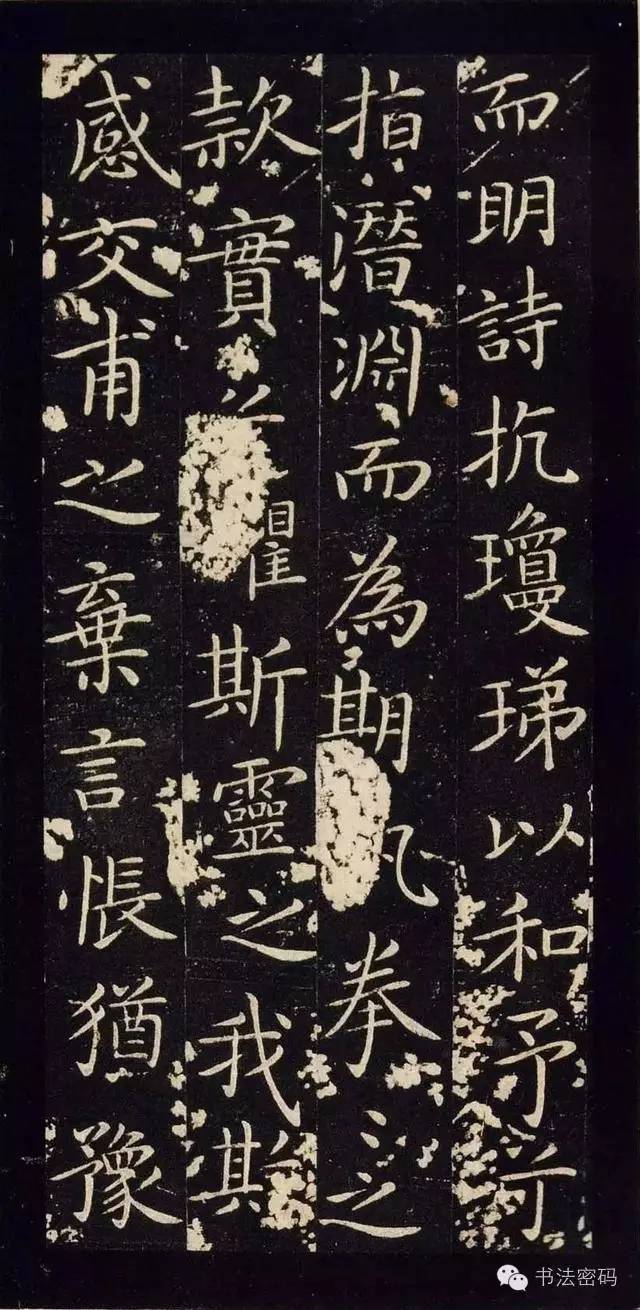 而明詩抗瓊珶以和予兮
指潛淵而為期拳〻之
款實斯靈之我
感交甫之棄言悵猶豫
书法密码